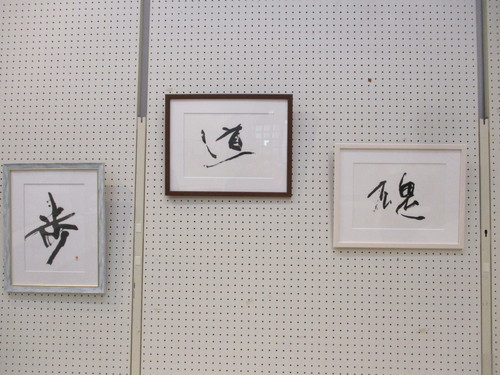 歩
道
魂